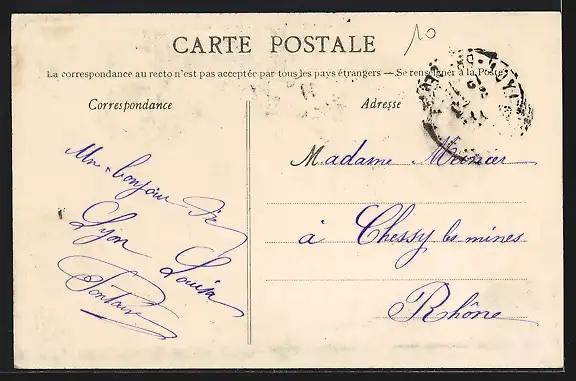 10
CARTE POSTALE
La correspondance au recto n'est pas acceptée par tous les pays étrangers — Se renseigner à la Poste
Correspondance
Adresse
Un bonjour de
Lyon Louisa
Fontaine
Madame Mercier
à Chessy les mines
Rhône